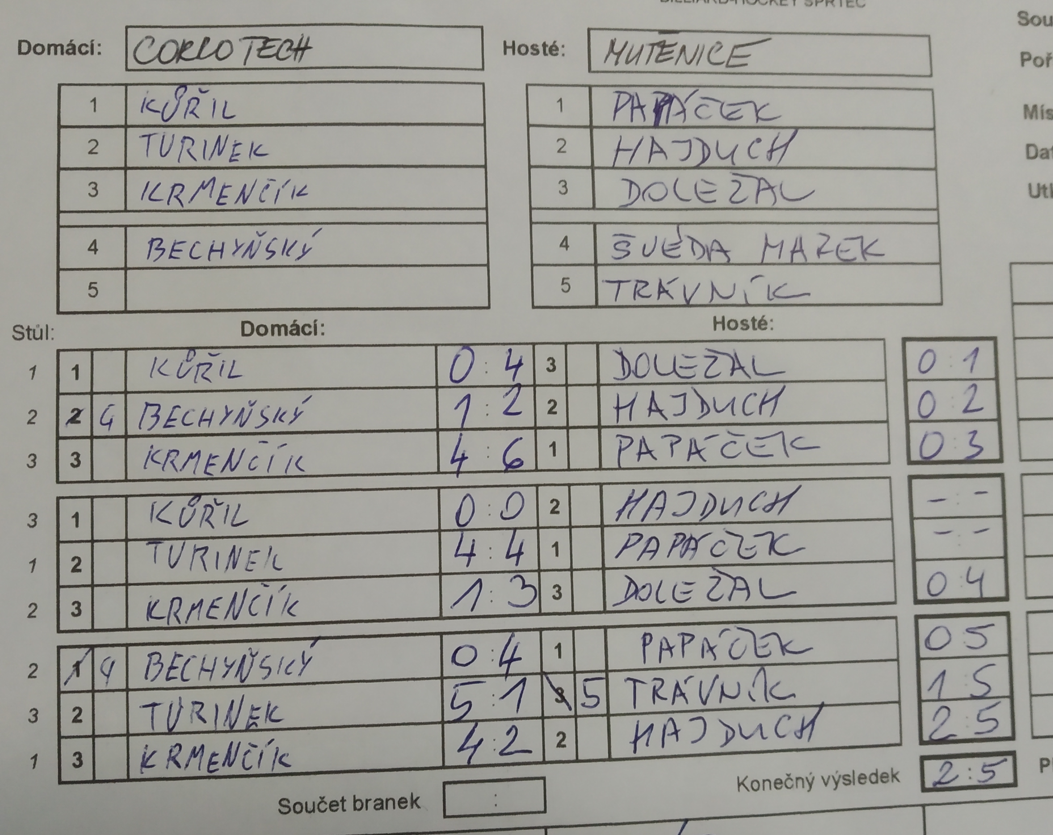 BILLIARD-HOCKEY ŠPRTEC
Domácí: CORLOTECH Hosté: MUTĚNICE
1 KŮŘIL 1 PAPÁČEK
2 TURINEK 2 HAJDUCH
3 KRMENČÍK 3 DOLEŽAL
4 BECHYŇSKÝ 4 ŠVÉDA MAREK
5 5 TRÁVNÍK
Stůl: Domácí: Hosté:
1 1 KŮŘIL 0:4 3 DOLEŽAL 0:1
2 2 4 BECHYŇSKÝ 1:2 2 HAJDUCH 0:2
3 3 KRMENČÍK 4:6 1 PAPÁČEK 0:3
3 1 KŮŘIL 0:0 2 HAJDUCH -:-
1 2 TURINEK 4:4 1 PAPÁČEK -:-
2 3 KRMENČÍK 1:3 3 DOLEŽAL 0:4
2 1 4 BECHYŇSKÝ 0:4 1 PAPÁČEK 0 5
3 2 TURINEK 5:1 3 5 TRÁVNÍK 1:5
1 3 KRMENČÍK 4:2 2 HAJDUCH 2:5
Součet branek : Konečný výsledek 2:5